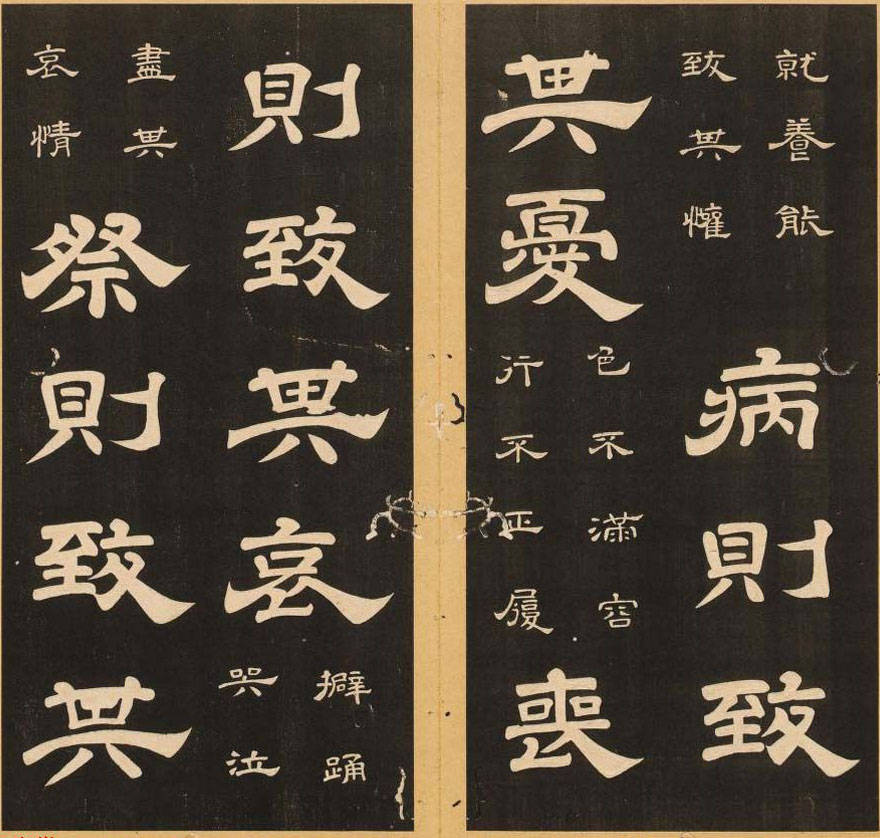 就養能
致其懽
病則致
其憂
色不滿容
行不正履
喪
則致其哀
擗踊
哭泣
盡其
哀情
祭則致其